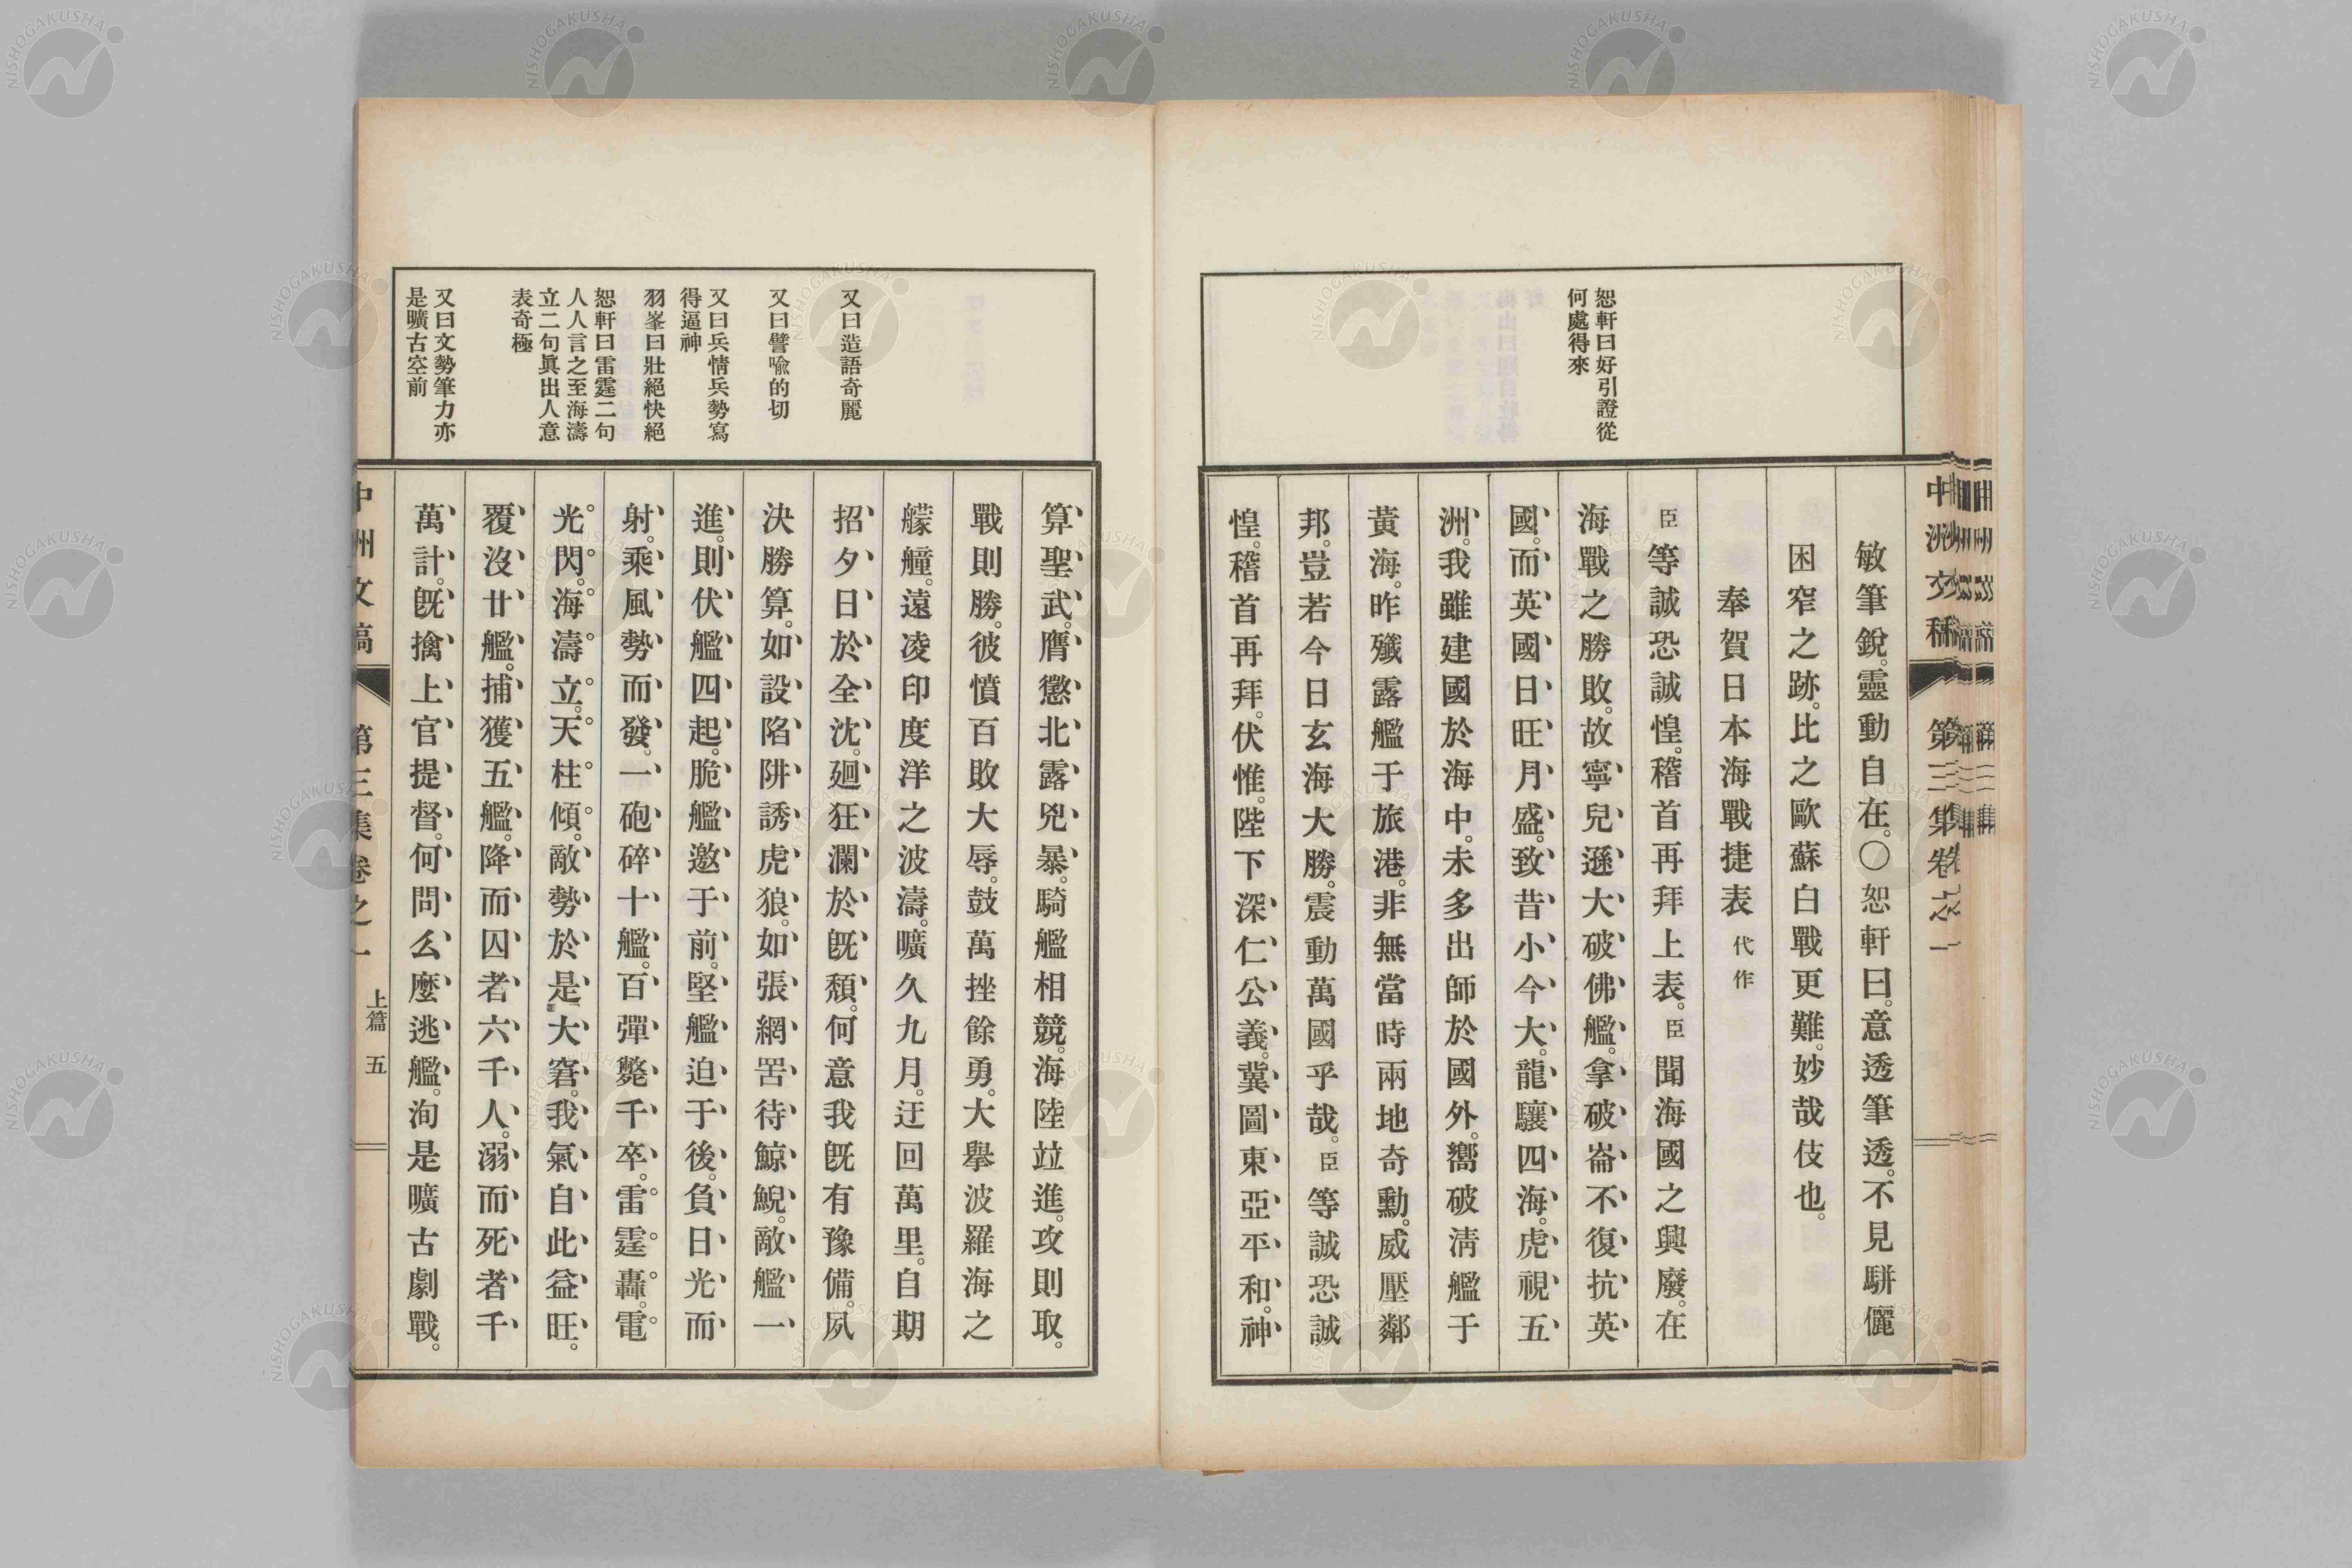 中洲文稿 第三集卷之一
恕軒曰好引證從
何處得來
敏筆銳。靈動自在。〇恕軒曰。意透筆透。不見駢儷
困窄之跡。比之歐蘇白戰更難。妙哉伎也。
奉賀日本海戰捷表 代作
臣等誠恐誠惶。稽首再拜上表。臣聞海國之興廢。在
海戰之勝敗。故寧兒遜大破佛艦。拿破崙不復抗英
國。而英國日旺月盛。致昔小今大。龍驤四海。虎視五
洲。我雖建國於海中。未多出師於國外。嚮破淸艦于
黃海。昨殲露艦于旅港。非無當時兩地奇勳。威壓鄰
邦。豈若今日玄海大勝。震動萬國乎哉。臣等誠恐誠
惶。稽首再拜。伏惟。陛下深仁公義。冀圖東亞平和。神
又曰造語奇麗
又曰譬喩的切
又曰兵情兵勢寫
得逼神
羽峯曰壯絕快絕
恕軒曰雷霆二句
人人言之至海濤
立二句眞出人意
表奇極
又曰文勢筆力亦
是曠古空前
算聖武。膺懲北露兇暴。騎艦相競。海陸竝進。攻則取。
戰則勝。彼憤百敗大辱。鼓萬挫餘勇。大擧波羅海之
艨艟。遠凌印度洋之波濤。曠久九月。迂回萬里。自期
招夕日於全沈。廻狂瀾於旣頹。何意我旣有豫備。夙
決勝算。如設陷阱誘虎狼。如張網罟待鯨鯢。敵艦一
進。則伏艦四起。脆艦邀于前。堅艦迫于後。負日光而
射。乘風勢而發。一砲碎十艦。百彈斃千卒。雷霆轟。電
光閃。海濤立。天柱傾。敵勢於是大窘。我氣自此益旺。
覆沒廿艦。捕獲五艦。降而囚者六千人。溺而死者千
萬計。旣擒上官提督。何問么麼逃艦。洵是曠古劇戰。
中洲文稿 第三集卷之一 上篇 五